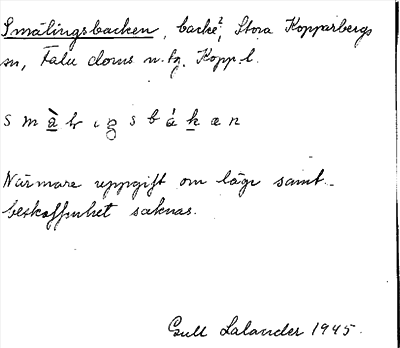 Smålingsbacken, backe?, Stora Kopparbergs
sn, Falu doms n. tg. Kopp. l.
Närmare uppgift om läge samt
beskaffenhet saknas.
Gull Lalander 1945.